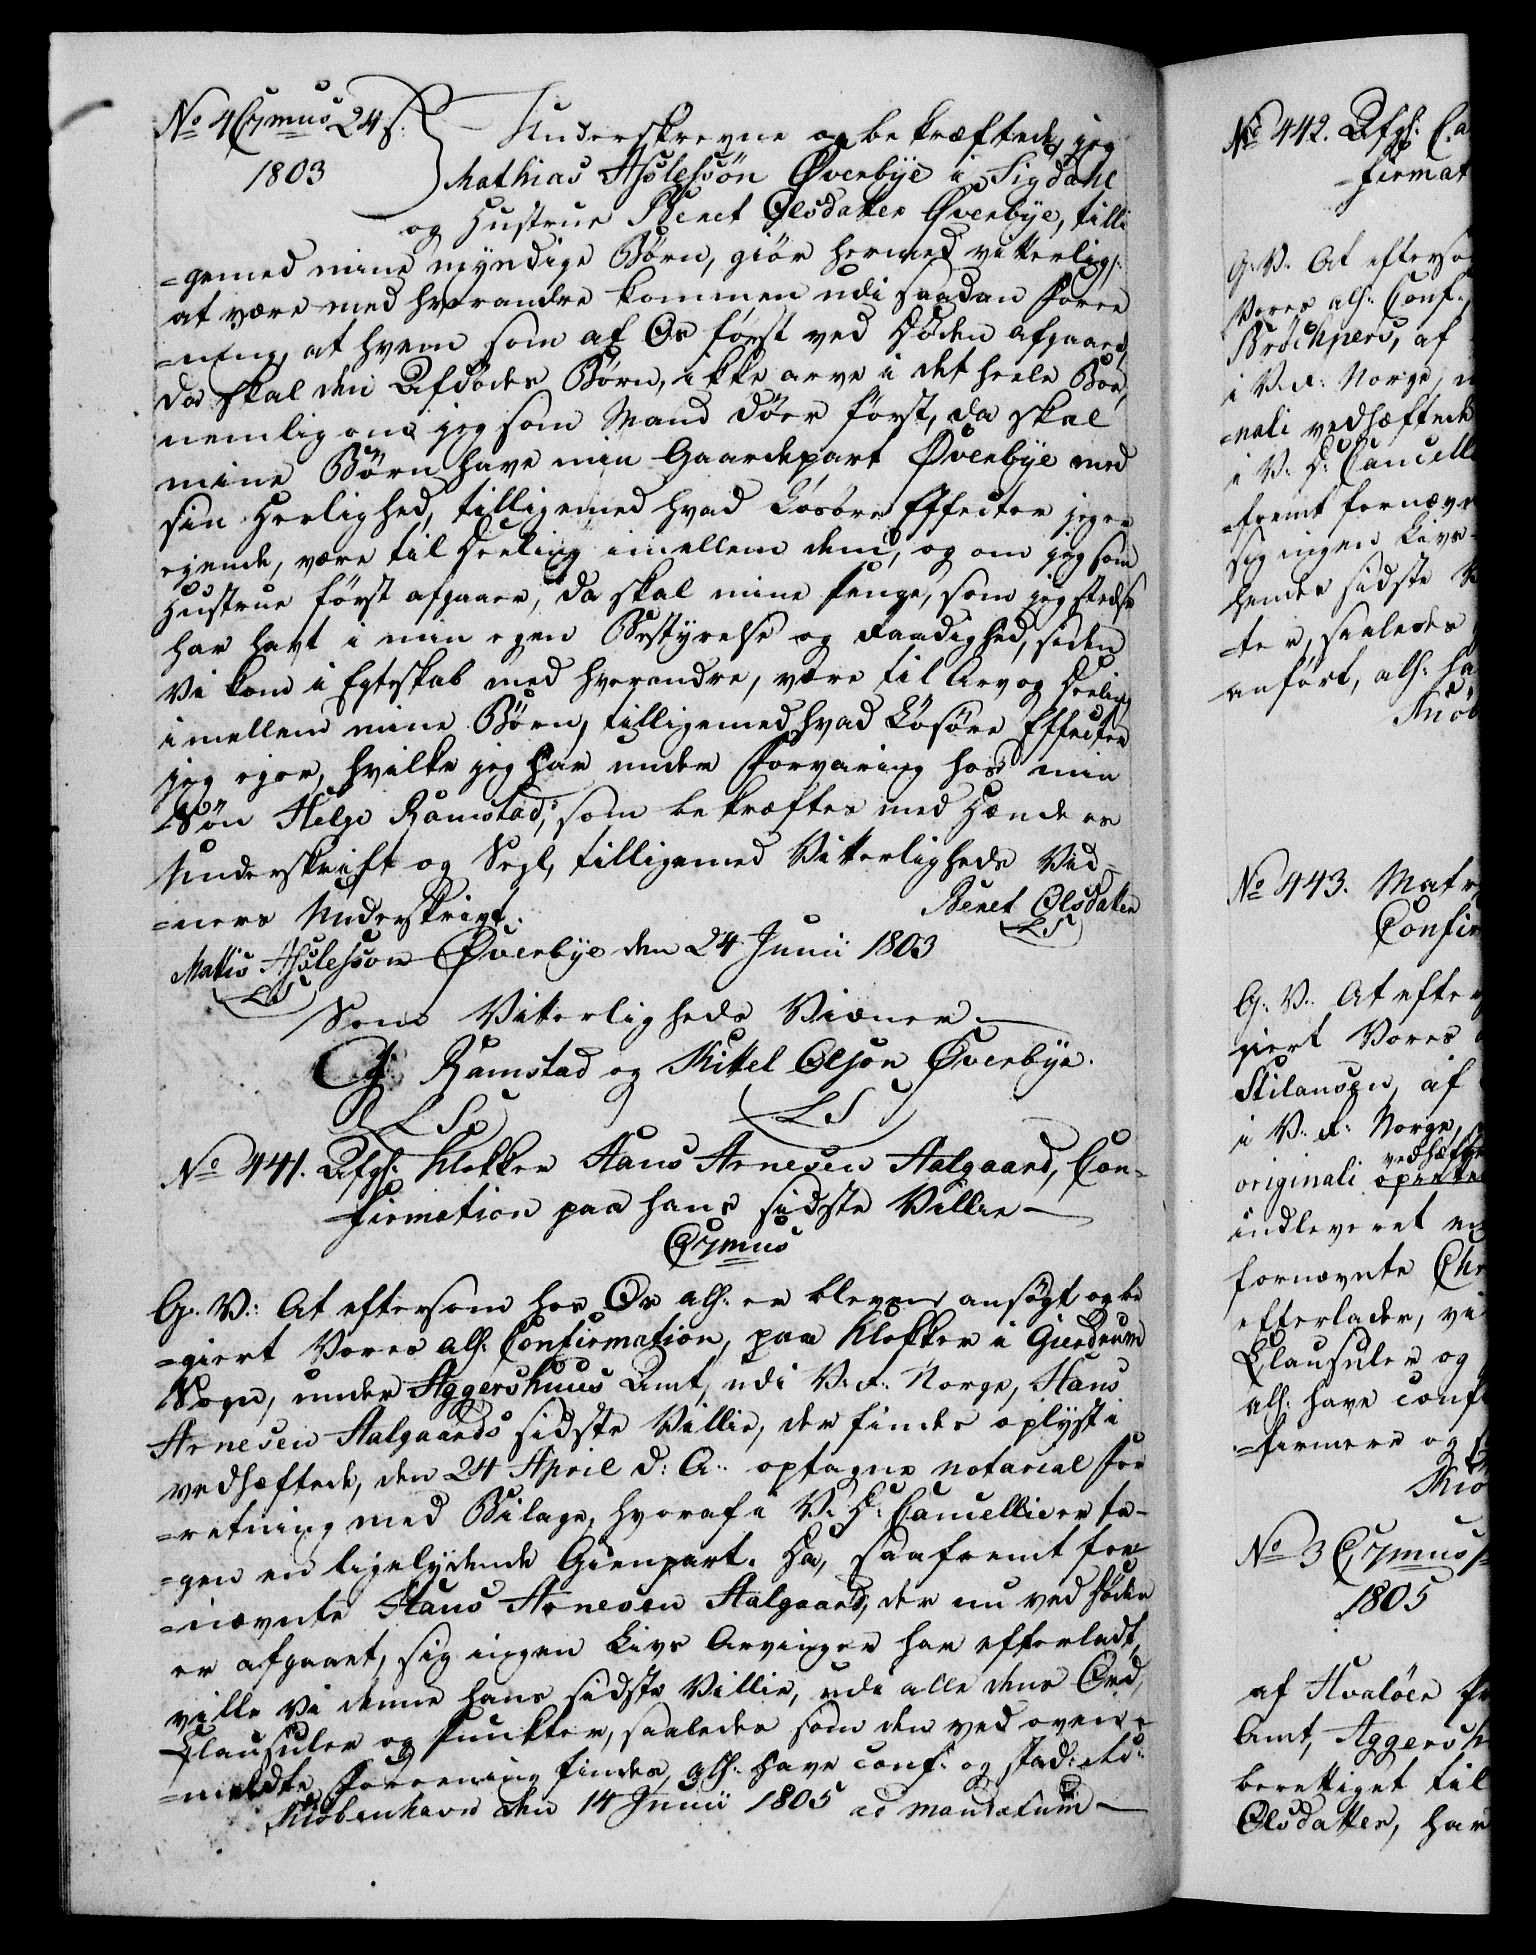 No 4 C 7mus 24 s:
1803
Underskrevne og bekræftede, jeg
Mathias Aslessøn Øverbye i Sigdahl
og Hustrue Beret Olsdatter Øverbye, tilli
=gemed mine myndige Børn, giør hermed vitterlig:
at være med hverandre kommen udi saadan Foree
=ning, at hvem som af Os først ved Døden afgaaer,
da skal den Afdødes Børn, ikke arve i det heele Boe,
nemlig om jeg som Mand döer först, da skal
mine Børn have min Gaardepart Øverbye med
sin Herlighed, tilligemed hvad Løsøre Effecter jeg er
eyende, være til Deeling imellem dem, og om jeg som
Hustrue först afgaaer, da skal mine Penge, som jeg stedse
har havt i min egen Bestyrelse og Raadighed, siden
Vi kom i Egteskab med hverandre, være til Arv og Deeling
imellem mine Børn, tilligemed hvad Løsøre Effecter
jeg ejer, hvilke jeg har under Forvaring hos min
Søn Helge Ramstad; som bekræftes med Hænders
Underskrift og Segl, tilligemed Vitterligheds Vid=
=ners Underskrivt. Beret Olsdatter
LS
Mattis Aslessøn Øverbye den 24 Junii 1803
LS
Som Vitterligheds Vidner
Ramstad og Kittel Olsøn Øverbye.
LS LS
No 441. Afg: Klokker Hans Arnesen Aalgaard, Con=
=firmation paa hans sidste Villie
C 7mus
G: V: At eftersom hos Os alh: er bleven ansøgt og be
=giert Vores alh: Confirmation, paa Klokker i Gierdrum
Sogn, under Aggershuus Amt, udi V. R. Norge, Hans
Arnesen Aalgaards sidste Villie, der findes oplyst i
vedhæftede, den 24 April d: A: optagne notarial For
=retning med Bilage, hvoraf i V. D: Cancellie er ta=
=gen en ligelydende Gienpart. Da, saafremt for
=nævnte Hans Arnesen Aalgaard, der nu ved Døden
er afgaaet, sig ingen Livs Arvinger har efterladt,
ville Vi denne hans sidste Villie, udi alle dens Ord,
Clausuler og Puncter, saaledes som den ved oven=
=meldte Forreening findes, alh: have conf: og stad:
Kiøbenhavn den 14 Junii 1805 ad mandatum
No 442. Afg:
=firmat
G. V. At efterso
Vores alh: Conf:
af
i V. R: Norge,
=nali vedhæftede
i V: D: Cancelli
=fremt fornævn
sig ingen Livs=
hendes sidste V
=ter, saaledes
anført, alh: ha
Kiøb
No 443.
Confir
G: V. At efter
giert Vores
af
i V. R: Norge,
vedhæfte
originali
indleveret
fornævnte Chr
efterlader, vi
Clausuler og
alh: have conf
=firmere og
Kiø
No 3 C 7mus
1805
af Hvaløer
Amt, Aggersh
berettiget til
Olsdatter, har